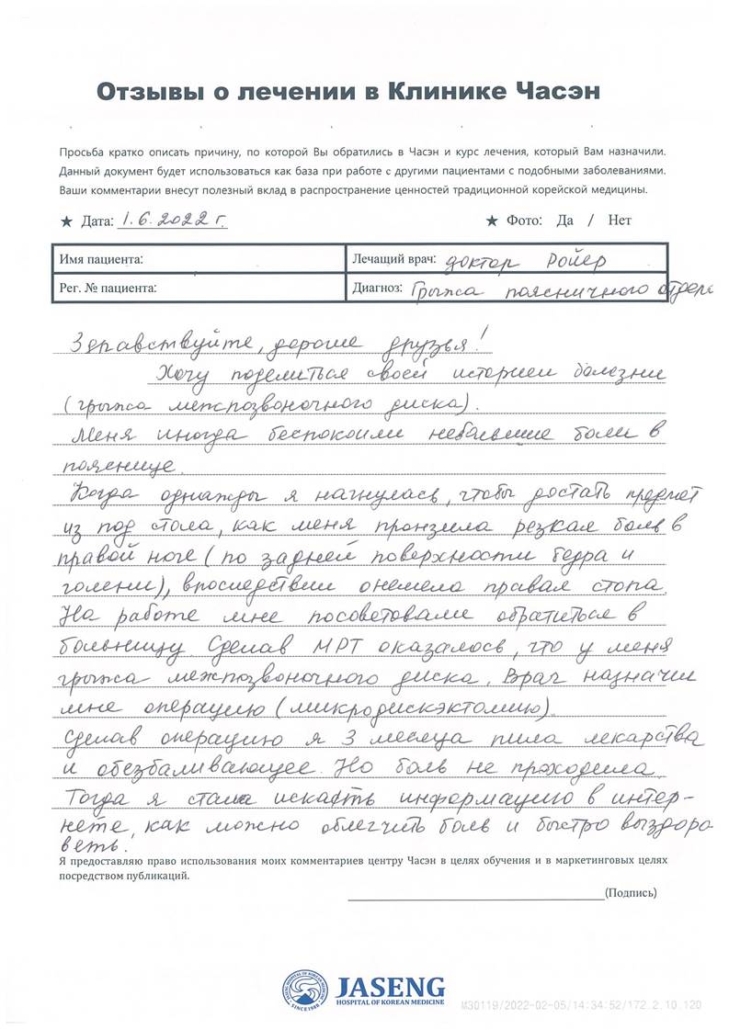 Отзывы о лечении в Клинике Часэн
Просьба кратко описать причину, по которой Вы обратились в Часэн и курс лечения, который Вам назначили.
Данный документ будет использоваться как база при работе с другими пациентами с подобными заболеваниями.
Ваши комментарии внесут полезный вклад в распространение ценностей традиционной корейской медицины.
★ Дата: 1.6.2022 г. ★ Фото: Да / Нет
Имя пациента: Лечащий врач: доктор Ройер
Рег. № пациента: Диагноз: Грыжа поясничного отдела
Здравствуйте, дорогие друзья!
Хочу поделиться своей историей болезни
(грыжа межпозвоночного диска).
Меня иногда беспокоили небольшие боли в
пояснице.
Когда однажды я нагнулась, чтобы достать предмет
из под стола, как меня пронзила резкая боль в
правой ноге (по задней поверхности бедра и
голени), впоследствии онемела правая стопа.
На работе мне посоветовали обратиться в
больницу. Сделав МРТ оказалось, что у меня
грыжа межпозвоночного диска. Врач назначил
мне операцию (микродискэктомию).
Сделав операцию я 3 месяца пила лекарства
и обезбаливающее. Но боль не проходила.
Тогда я стала искать информацию в интер-
нете, как можно облегчить боль и быстро выздоро
веть.
Я предоставляю право использования моих комментариев центру Часэн в целях обучения и в маркетинговых целях
посредством публикаций.
(Подпись)
JASENG
HOSPITAL OF KOREAN MEDICINE
/2022-02-05/14:34:52/172.2.10.120